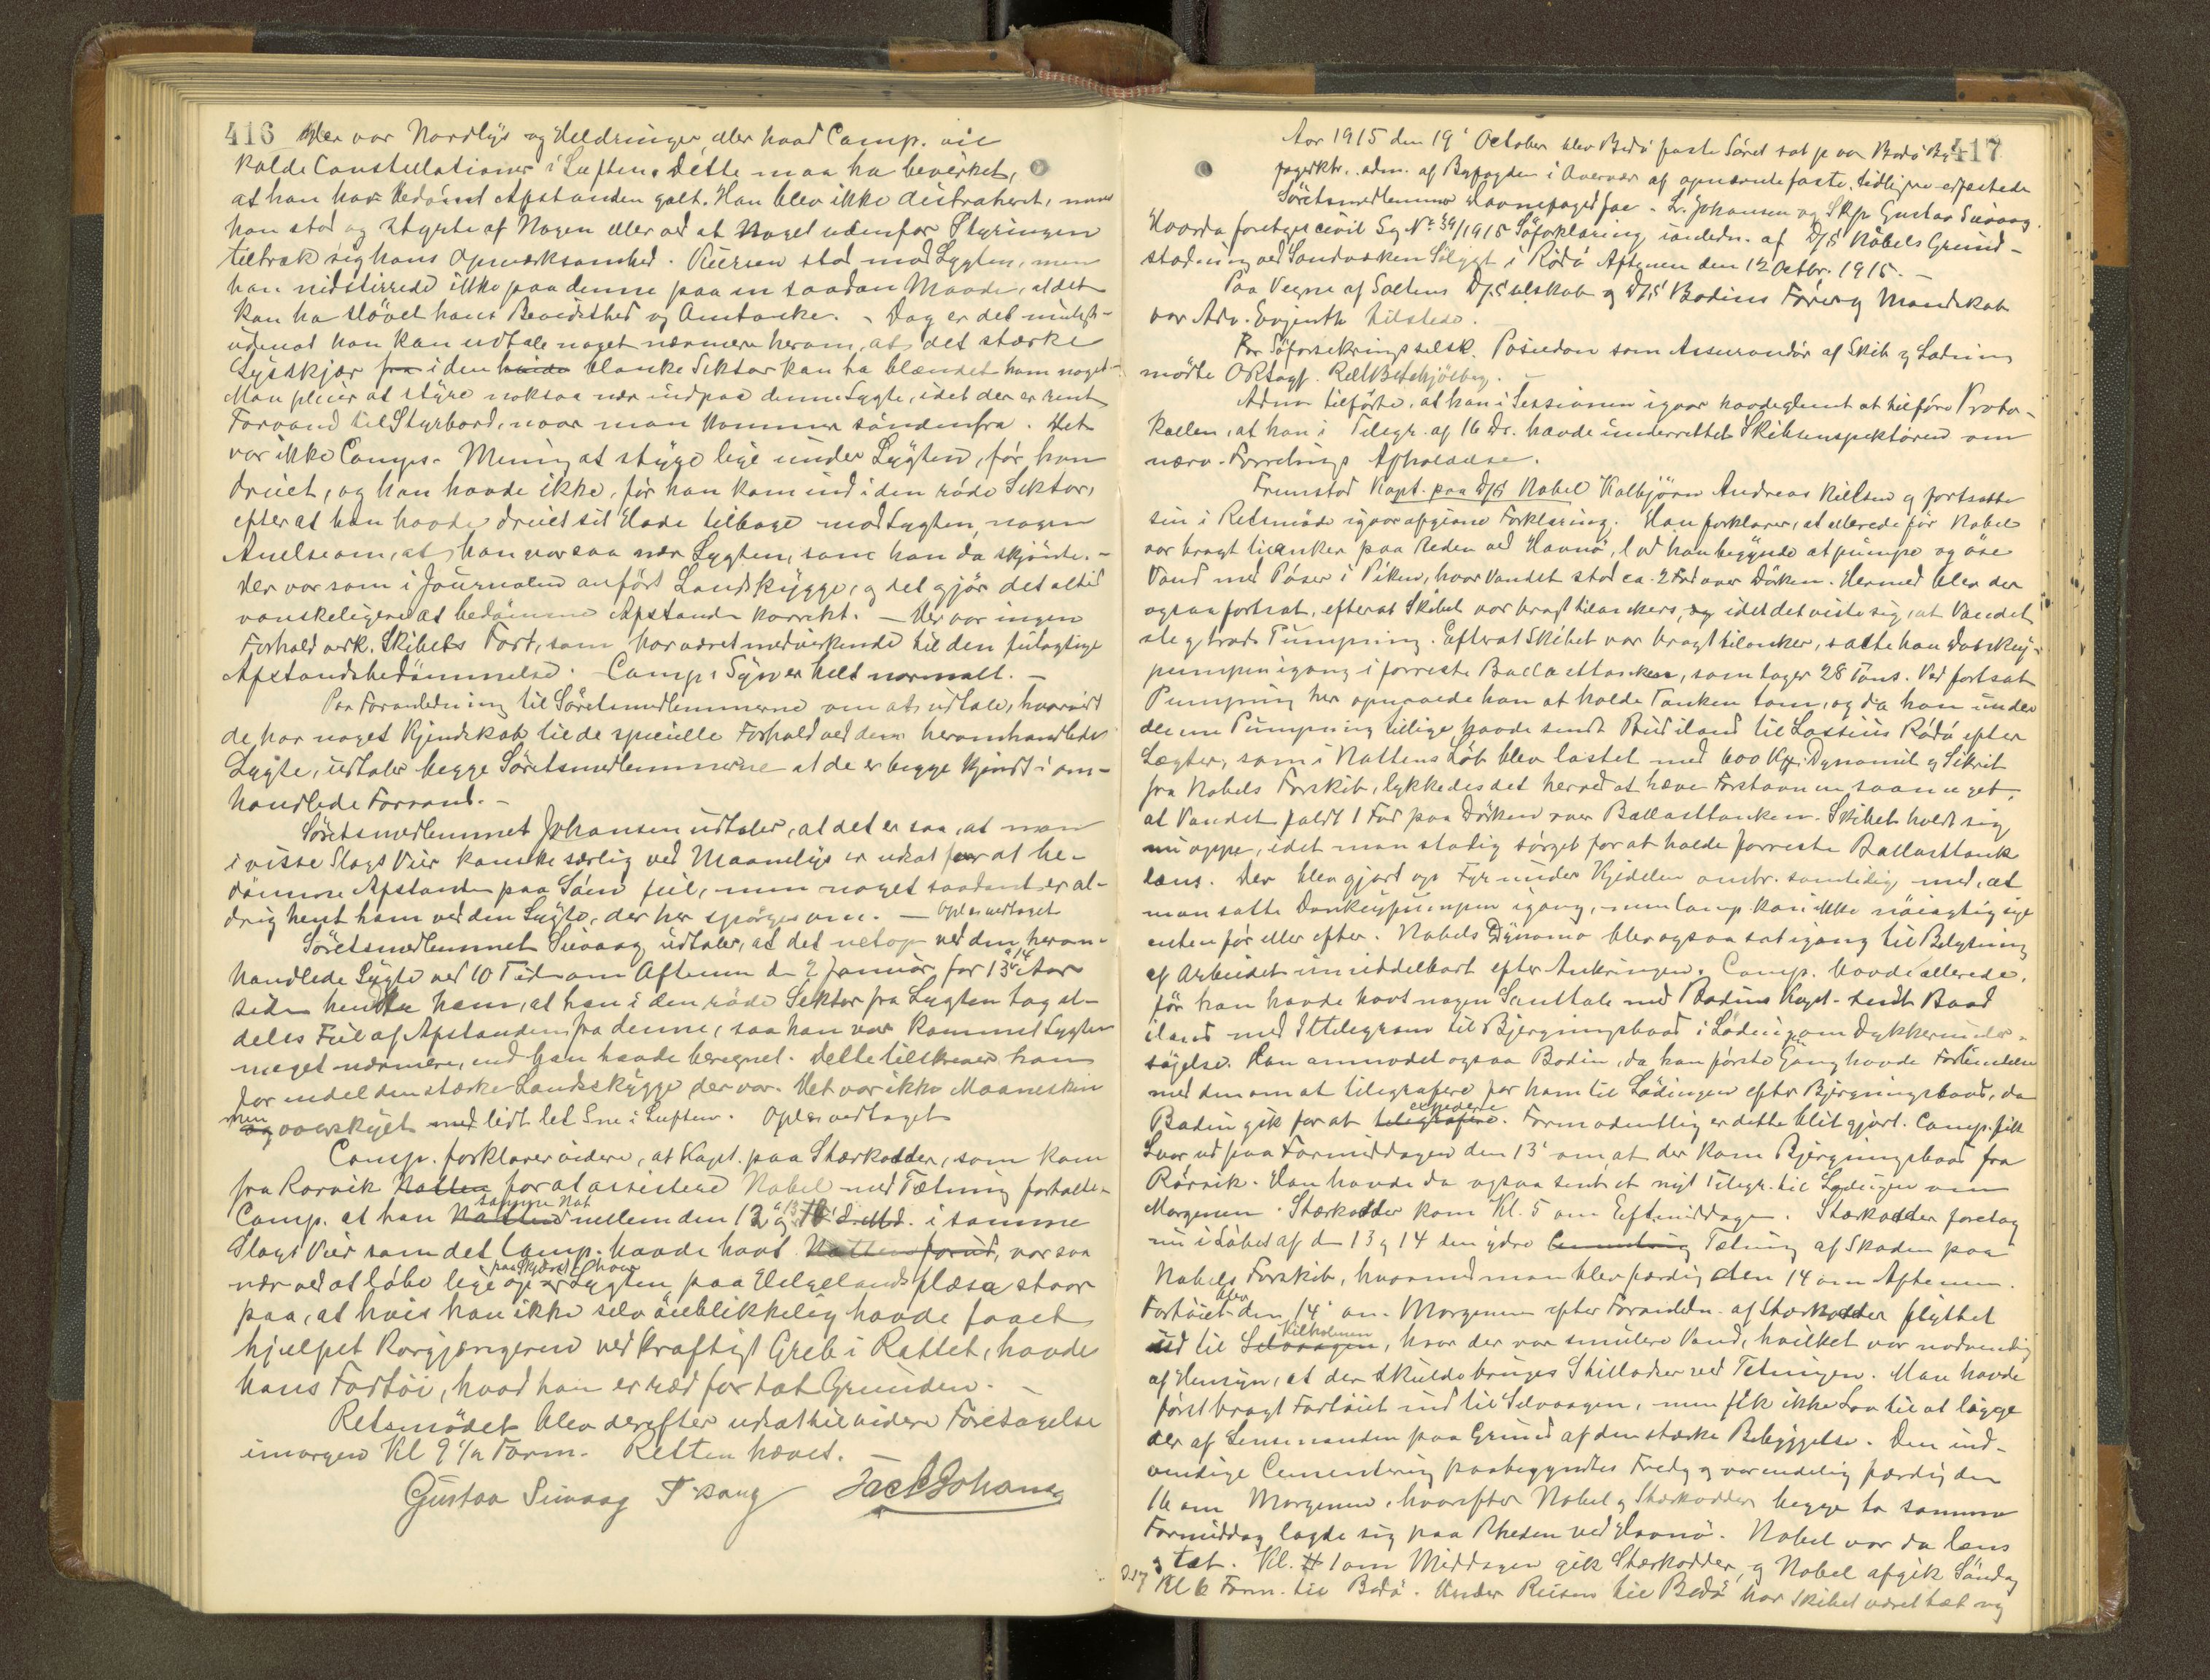 416
Der var Nordlys og Heldringer, eller hvad Comp. vil
kalde Constellationer i Luften. Dette maa ha bevirket,
at han har bedømt Afstanden galt. Han blev ikke distraheret, mens
han stod og styrte af Nogen eller ved at Noget udenfor Styringen
tiltrak sig hans Opmærksomhed. Kursen stod mod Lygten, men
han nidstirrede ikke paa denne paa en saadan Maade, at det
kan ha sløvet hans Bevidsthed og Omtanke. - Dog er det muligt -
udenat han kan udtale noget nærmere herom, at det stærke
Lysskjær fra i den hvide blanke Sektor kan ha blændet ham noget -
Man pleier at styre noksaa nær indpaa denne Lygte, idet der er rent
Farvand til Styrbord, naar man kommer søndenfra. Det
var ikke Comps. Mening at styre lige under Lygten, før han
dreiet, og han havde ikke, før han kom ind i den røde Sektor,
efterat han havde dreiet sit Hode tilbage mod Lygten, nogen
Anelse om, at han var saa nær Lygten, som han da skjønte. -
Der var som i Journalen anført Landskygge, og det gjør det altid
vanskeligere at bedømme Afstande korrekt. - Der var ingen
Forhold vedk. Skibets Fart, som har været medvirkende til den feilagtige
Afstandsbedømmelse. Comp.s Syn er helt normalt. -
Paa Foranledning til Søretsmedlemmerne om at udtale, hvorvidt
de har noget Kjendskab til de specielle Forhold ved den heromhandlede
Lygte, udtaler begge Søretsmedlemmerne at de er begge kjendt i om-
handlede Farvand. -
Søretsmedlemmet Johansen udtaler, at det er saa, at man
i visse Slags Veir kanske særlig ved Maanelys er udsat for at be-
dømme Afstanden paa Søen feil, men noget saadant er al-
drig hendt ham ved den Lygte, der her spørges om. - Opl. vedtaget
Søretsmedlemmet Sivaag udtaler, at det netop ved den herom-
handlede Lygte ved 10 Tiden om Aftenen d. 2 Januar for 13 à 14 Aar
siden hendte ham, at han i den røde Sektor fra Lygten tog al-
deles Feil af Afstanden fra denne, saa han var kommet Lygten
meget nærmere, end han havde beregnet. Dette tilskriver han
for en del den stærke Landskygge der var. Det var ikke Maaneskin
men og overskyet med lidt let Sne i Luften. Oplæs. vedtaget
Comp. forklarer videre, at Kapt. paa Stærkodder, som kom
fra Rørvik Natten for at assistere Nobel med Tætning fortalte
Comp. at han Natten samme Nat mellem den 12 og 13 d. Md. i samme
Slags Veir som det Comp. havde havt Natten forud, var saa
nær ved at løbe lige op paa Skjæret, hvor Lygten paa Helgelandsflæsa staar
paa, at hvis han ikke selv øieblikkelig havde faaet
hjulpet Rorgjængeren ved kraftigt Greb i Rattet, havde
hans Fartøi, hvad han er ræd for tat Grunden. -
Retsmødet blev derefter udsat til videre Foretagelse
imorgen Kl 9 1/2 Form. Retten hævet.
Gustav Sivaag Jac L Johansen
417
Aar 1915 den 19' October blev Bodø faste Søret sat paa Bodø By-
fogedktr. adm. af Byfogden i Overvær af opnævnte faste, tidligere edfæstede
Søretsmedlemmer Havnefoged Jac. L. Johansen og Skp. Gustav Sivaag.
Hvorda foretoges civil Sag No 39/1915 Søforklaring i anledn. af D/S Nobels Grund-
stødning ved Sandvæken Lilygt i Rødø Aftenen den 12 Octbr. 1915. -
Paa Vegne af Saltens D/S selskab og D/S Bodins Fører og Mandskab
var Adv. Evjenth tilstede.
For Søforsikringsselsk. Poseidon som Assurandør af Skib og Ladning
mødte ORsagf.
Adm. tilførte, at han i Sessionen igaar havde glemt at tilføre Proto-
kollen, at han i Telegr. af 16 Ds. havde underrettet Skibsinspektøren om
nærv. Forretnings Afholdelse.
Fremstod Kapt. paa D/S Nobel Kolbjørn Andreas Nielsen og fortsatte
sin i Retsmøde igaar afgivne Forklaring. Han forklarer, at allerede før Nobel
var bragt til ankers paa Reden ved Havnø, lod han begynde at pumpe og øse
Vand med Pøser i Piken, hvor Vandet stod ca. 2 Fod over Dørken. Hermed blev der
ogsaa fortsat, efterat Skibet var bragt til ankers, og idet det viste sig, at Vandet
steg trods Pumpning. Efterat Skibet var bragt til anker, satte han Donkey-
pumpen igang i forreste Ballasttanken, som tager 28 Tons. Ved fortsat
Pumpning her opnaaede han at holde Tanken tom, og da han under
denne Pumpning tillige havde sendt Bud iland til Lossius Rødø efter
Lægter, som i Nattens Løb blev lastet med 600 Kg. Dynamit og Sikrit
fra Nobels Forskib, lykkedes det herved at hæve Forstavnen saa meget,
at Vandet faldt 1 Fod paa Dørken over Ballasttanken. Skibet holdt sig
nu oppe, idet man stadig sørget for at holde forreste Ballasttank
læns. Der blev gjort op Fyr under Kjedelen ombr. samtidig med, at
man satte Donkeypumpen igang, men Comp. kan ikke nøiagtig sige
enten før eller efter. Nobels Dynamo blev ogsaa sat igang til Belysning
af Arbeidet umiddelbart efter Ankringen. Comp. havde allerede,
før han havde havt nogen Samtale med Bodins Kapt. sendt Baad
iland med 1 Telegram til Bjergningsbaad i Lødingen om Dykkerunder-
søgelse. Han anmodet ogsaa Bodin, da han første Gang havde Forbindelse
med den om at telegrafere for ham til Lødingen efter Bjergningsbaad, da
Bodin gik for at telegrafere expedere. Formodentlig er dette blit gjort. Comp. fik
Svar ud paa Formiddagen den 13' om, at der kom Bjergningsbaad fra
Rørvik. Han havde da ogsaa sendt et nyt Telegr. til Lødingen om
Morgenen. Stærkodder kom Kl. 5 om Eftmiddagen. Stærkodder foretog
nu i Løbet af d 13 og 14 den ydre Cementering Tætning af Skaden paa
Nobels Forskib, hvormed man blev færdig den 14 om Aftenen.
Fartøiet blev den 14' om Morgenen efter Foranledn. af Stærkodder flyttet
ud til Selvaagen Kilholmen, hvor der var smulere Vand, hvilket var nødvendig
af Hensyn, at der skulde bruges Stilladser ved Tætningen. Man havde
først bragt Fartøiet ind til Selvaagen, men fik ikke Lov til at ligge
der af Lensmanden paa Grund af den stærke Bebyggelse. Den ind-
vendige Cementering paabegyndtes Fredg og var endelig færdig den
16 om Morgenen, hvorefter Nobel og Stærkodder begge to samme
Formiddag lagde sig paa Rheden ved Havnø. Nobel var da læns
og tæt. Kl. 1 om Middagen gik Stærkodder, og Nobel afgik Søndag
D. 17 Kl 6 Form. til Bodø. Under Reisen til Bodø har Skibet været tæt og